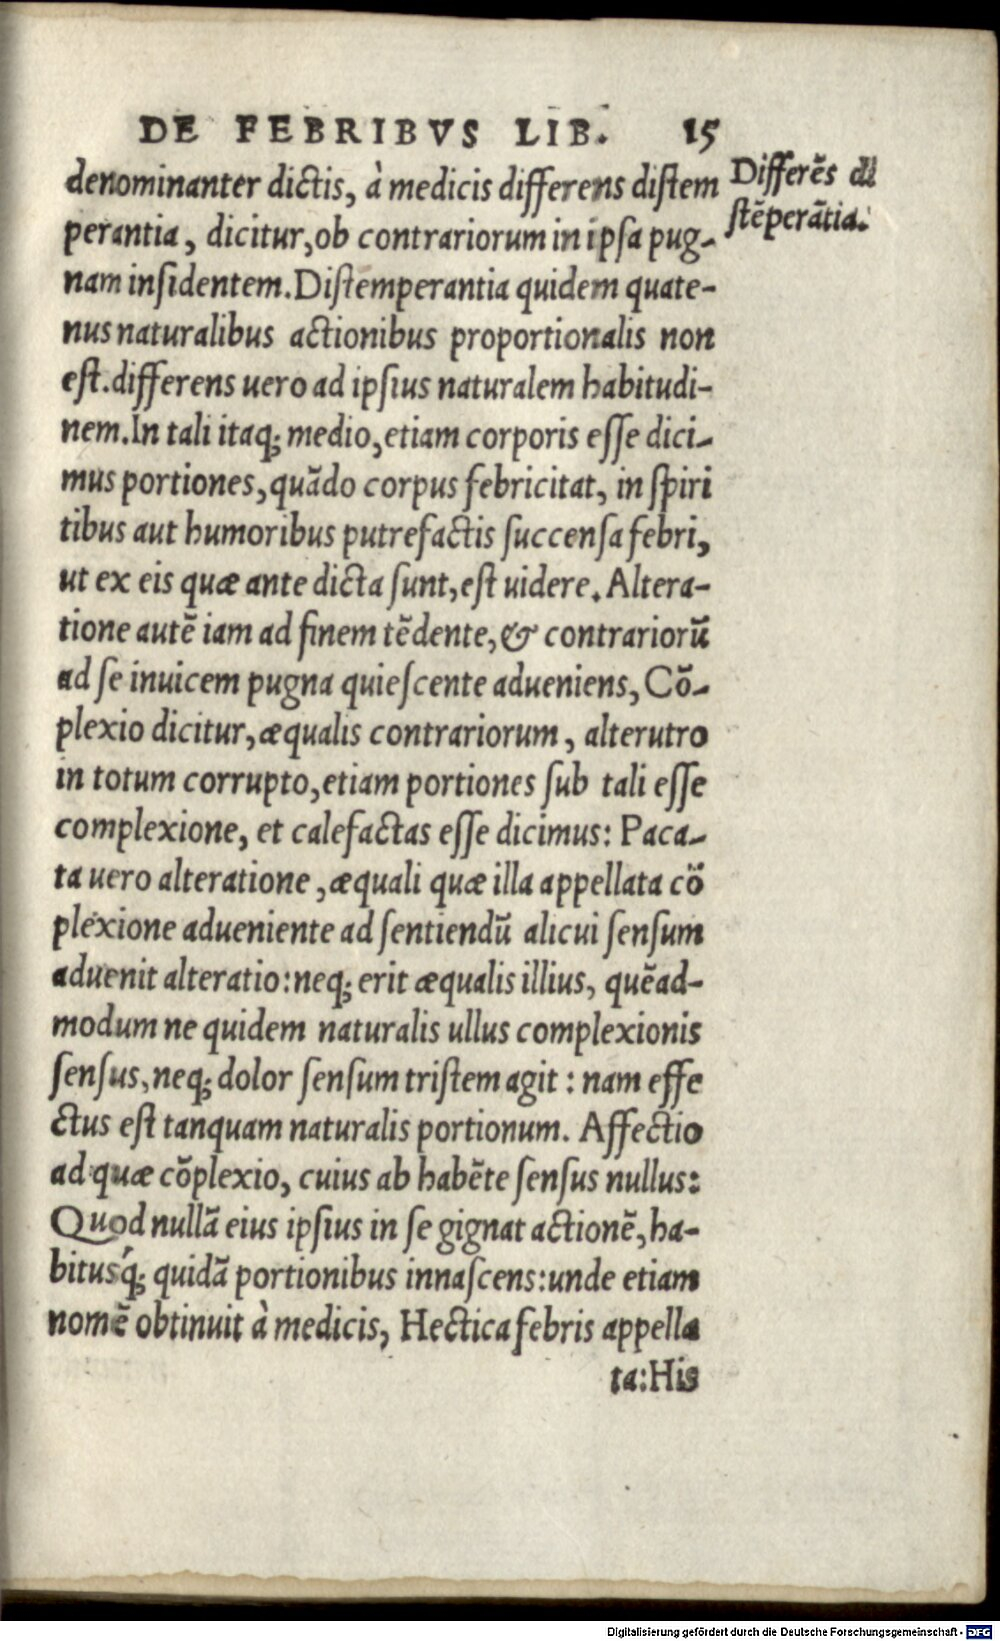 DE FEBRIBVS LIB. 15
denominanter dictis, à medicis differens distem
perantia, dicitur,ob contrariorum in ipsa pug-
nam insidentem.Distemperantia quidem quate-
nus naturalibus actionibus proportionalis non
est.differens uero ad ipsius naturalem habitudi-
nem.In tali itaq; medio,etiam corporis esse dici-
mus portiones,quãdo corpus febricitat, in spiri
tibus aut humoribus putrefactis succensa febri,
ut ex eis quæ ante dicta sunt,est uidere. Altera-
tione autẽ iam ad finem tẽdente,& contrariorũ
ad se inuicem pugna quiescente adueniens, Cõ-
plexio dicitur,æqualis contrariorum, alterutro
in totum corrupto,etiam portiones sub tali esse
complexione, et calefactas esse dicimus: Paca-
ta uero alteratione ,æquali quæ illa appellata cõ
plexione adueniente ad sentiendũ alicui sensum
aduenit alteratio:neq; erit æqualis illius, quẽad-
modum ne quidem naturalis ullus complexionis
sensus,neq; dolor sensum tristem agit : nam effe
ctus est tanquam naturalis portionum. Affectio
ad quæ cõplexio, cuius ab habẽte sensus nullus:
Quod nullã eius ipsius in se gignat actionẽ, ha-
bitusq́; quidã portionibus innascens:unde etiam
nomẽ obtinuit à medicis, Hectica febris appella
ta:His
Differẽs di
stẽperãtia.
Digitalisierung gefördert durch die Deutsche Forschungsgemeinschaft - DFG